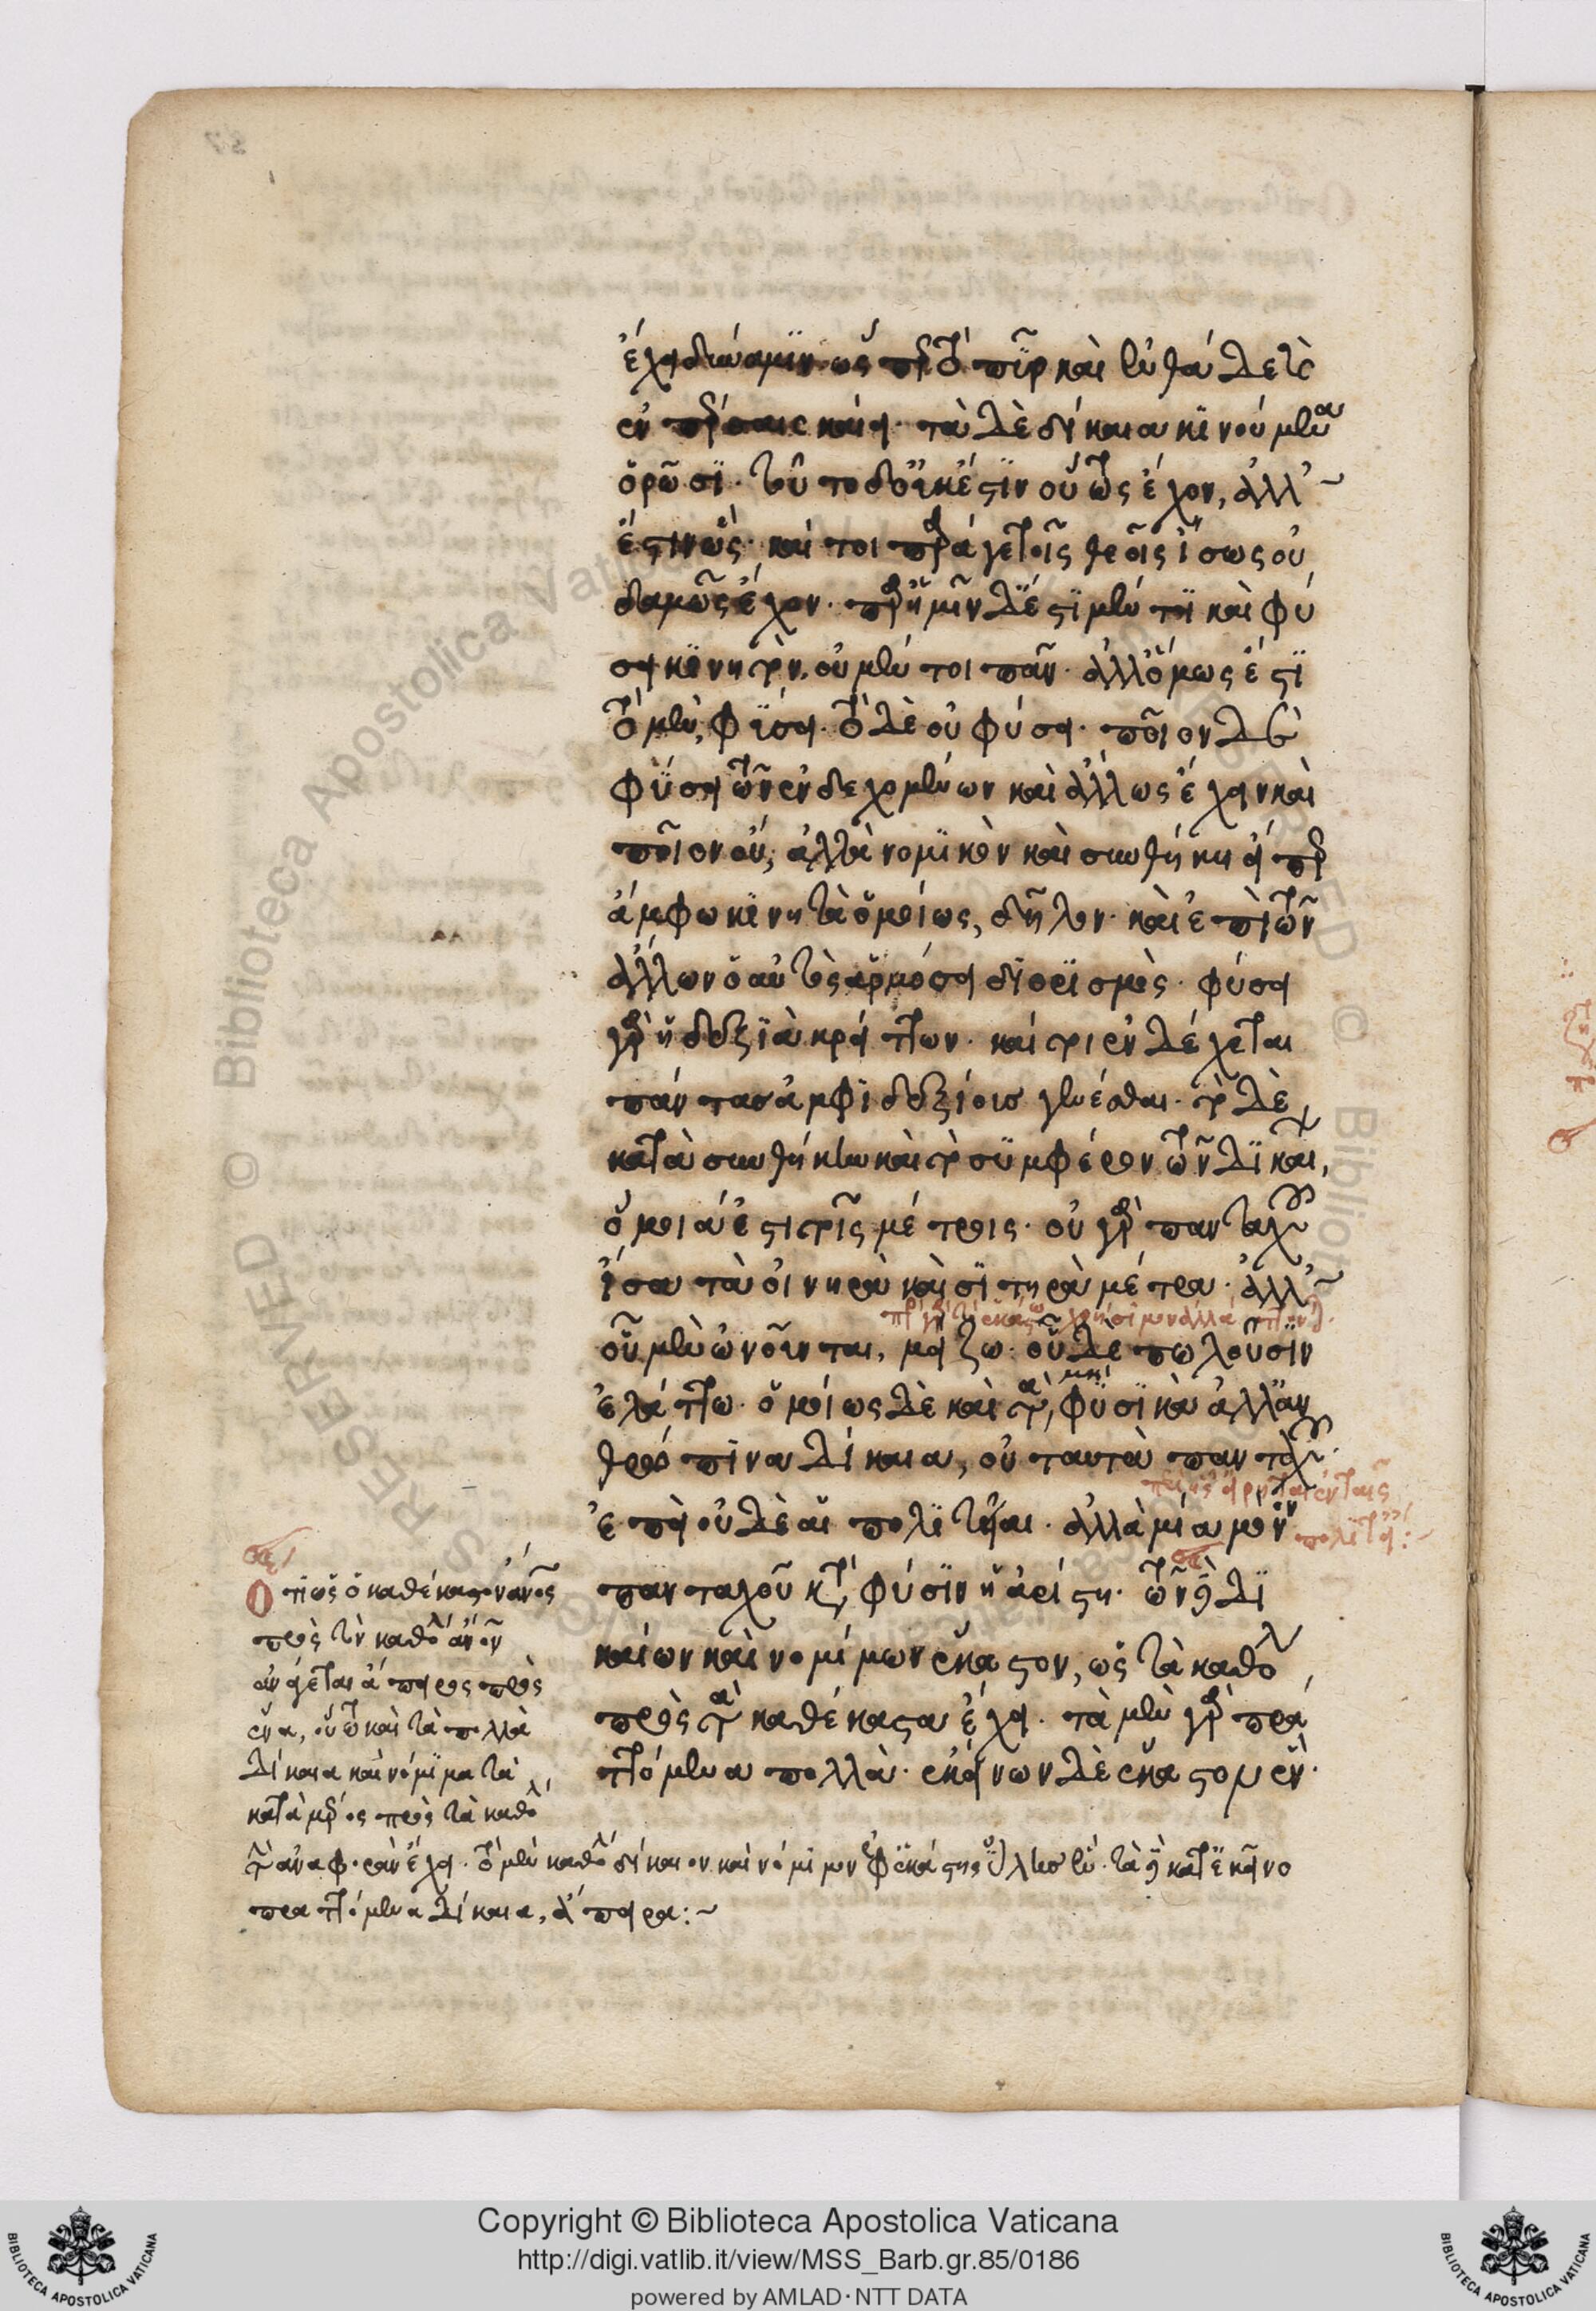 ἔχει δύναμιν. ὥσπερ τὸ πῦρ καὶ ἐνθάδε καὶ
ἐν πέρσαις καίει. τὰ δὲ δίκαια κινούμενα
ὁρῶσι. τοῦτο δ' οὐκ ἔστιν οὕτως ἔχον, ἀλλ'
ἔστιν ὥς. καίτοι παρά γε τοῖς θεοῖς ἴσως οὐ
δαμῶς ἔχον. παρ' ἡμῖν δ' ἔστι μέν τι καὶ φύ
σει κινητὸν. οὐ μέν τοι πᾶν. ἀλλ' ὅμως ἔστι
τὸ μὲν, φύσει. τὸ δὲ οὐ φύσει. ποῖον δὲ
φύσει τῶν ἐνδεχομένων καὶ ἄλλως ἔχειν καὶ
ποῖον οὔ, ἀλλὰ νομικὸν καὶ συνθήκη εἴπερ
ἄμφω κινητὰ ὁμοίως, δῆλον. καὶ ἐπὶ τῶν
ἄλλων ὁ αὐτὸς ἁρμόσει διορισμὸς. φύσει
γὰρ ἡ δεξιὰ κρείττων. καί τοι ἐνδέχεται
πάντας ἀμφιδεξίους γενέσθαι. τὰ δὲ
κατὰ συνθήκην καὶ τὸ συμφέρον τῶν δικαίων,
ὅμοιά ἐστι τοῖς μέτροις. οὐ γὰρ πανταχοῦ
ἴσα τὰ οἰνηρὰ καὶ σιτηρὰ μέτρα. ἀλλ'
οὗ μὲν ὠνοῦνται, μείζω. οὗ δὲ πωλοῦσιν
ἐλάττω. ὁμοίως δὲ καὶ τὰ μὴ φυσικὰ ἀλλ' ἀν
θρώπινα δίκαια, οὐ ταυτὰ πανταχοῦ.
ἐπεὶ οὐδὲ αἱ πολιτεῖαι. ἀλλὰ μία μόνον
πολιτεία:
πανταχοῦ κατὰ φύσιν ἡ ἀρίστη. τῶν δὲ δι
καίων καὶ νομίμων ἕκαστον, ὡς τὰ καθόλου
πρὸς τὰ καθέκαστα ἔχει. τὰ μὲν γὰρ πρα
ττόμενα πολλὰ. ἐκείνων δὲ ἕκαστον ἕν.
Ὅτι ὡς ὁ καθέκαστον ἄνθρωπος
πρὸς τὸν καθόλου ἄνθρωπον
ἀνάγεται ἄπειρος πρὸς
ἕνα, οὕτω καὶ τὰ πολλὰ
δίκαια καὶ νόμιμα τὰ
κατὰ μέρος πρὸς τὰ καθόλου
τὴν ἀναφορὰν ἔχει. τὸ μὲν καθόλου δίκαιον καὶ νόμιμον ἐφ' ἑκάστης ὕλης ἕν. τὰ δὲ κατ' ἐκεῖνο
πραττόμενα δίκαια, ἄπειρα:~
Copyright © Biblioteca Apostolica Vaticana
http://digi.vatlib.it/view/MSS_Barb.gr.85/0186
powered by AMLAD·NTT DATA